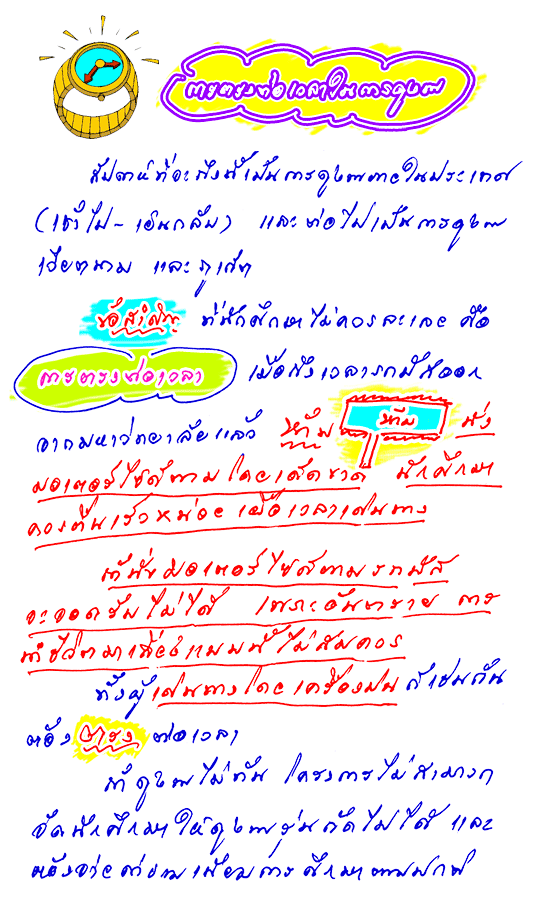 การตรงต่อเวลาในการดูงาน
สัปดาห์ที่จะถึงนี้เป็นการดูงานภายในประเทศ
(เช้าไป-เย็นกลับ) และต่อไปเป็นการดูงาน
เวียดนาม และภูเก็ต
ข้อสำคัญ ที่นักศึกษาไม่ควรละเลย คือ
การตรงต่อเวลา เมื่อถึงเวลารถบัสออก
จากมหาวิทยาลัยแล้ว ห้าม ห้าม นั่ง
มอเตอร์ไซด์ตามโดยเด็ดขาด นักศึกษา
ควรตื่นเร็วหน่อย เมื่อเวลาเดินทาง
ถ้านั่งมอเตอร์ไซด์ตามรถบัส
จะจอดรับไม่ได้ เพราะอันตราย การ
ทำชีวิตมาเสี่ยงแบบนี้ไม่สมควร
ทั้งผู้เดินทางโดยเครื่องบิน ก็เช่นกัน
ต้อง ตรง ต่อเวลา
ถ้าดูงานไม่ทัน โครงการไม่สามารถ
จัดนักศึกษาให้ดูงานรุ่นถัดไปได้ และ
ต้องจ่ายค่าธรรมเนียมการศึกษาตามปกติ